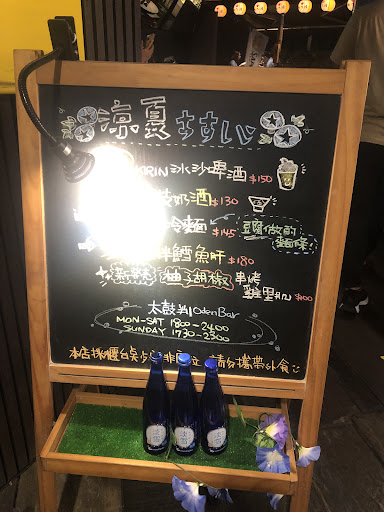 涼夏 すずしい
KIRIN 冰沙啤酒 $150
奶酒 $130
冷麵 $145 豆腐做的麵條!
鱈魚肝 $180
柚子胡椒 串烤
雞里肌 $100
太鼓判 Oden Bar
MON-SAT 1800-2400
SUNDAY 1730-2300
本店採櫃台 請勿攜帶外食